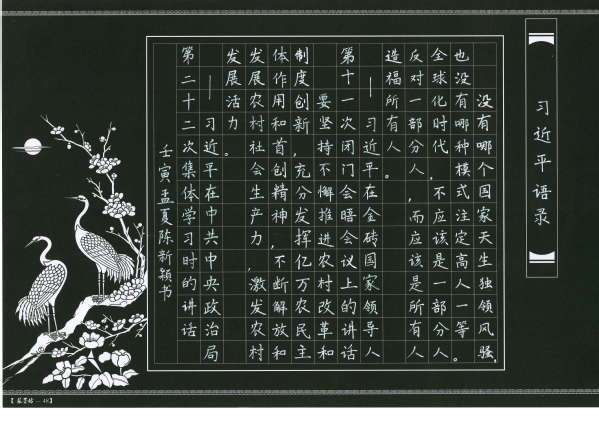 习近平语录
没有哪个国家天生独领风骚,
也没有哪种模式注定高人一等。
全球化时代,不应该是一部分人
反对一部分人,而应该是所有人
造福所有人。
—习近平在金砖国家领导人
第十一次闭门会暗会议上的讲话
要坚持不懈推进农村改革和
制度创新,充分发挥亿万农民主
体作用和首创精神,不断解放和
发展农村社会生产力,激发农村
发展活力。
—习近平在中共中央政治局
第二十二次集体学习时的讲话
壬寅孟夏陈新颖书